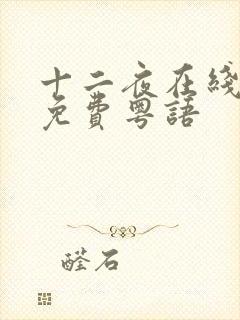 十二夜在綫
免費粵語
醛石